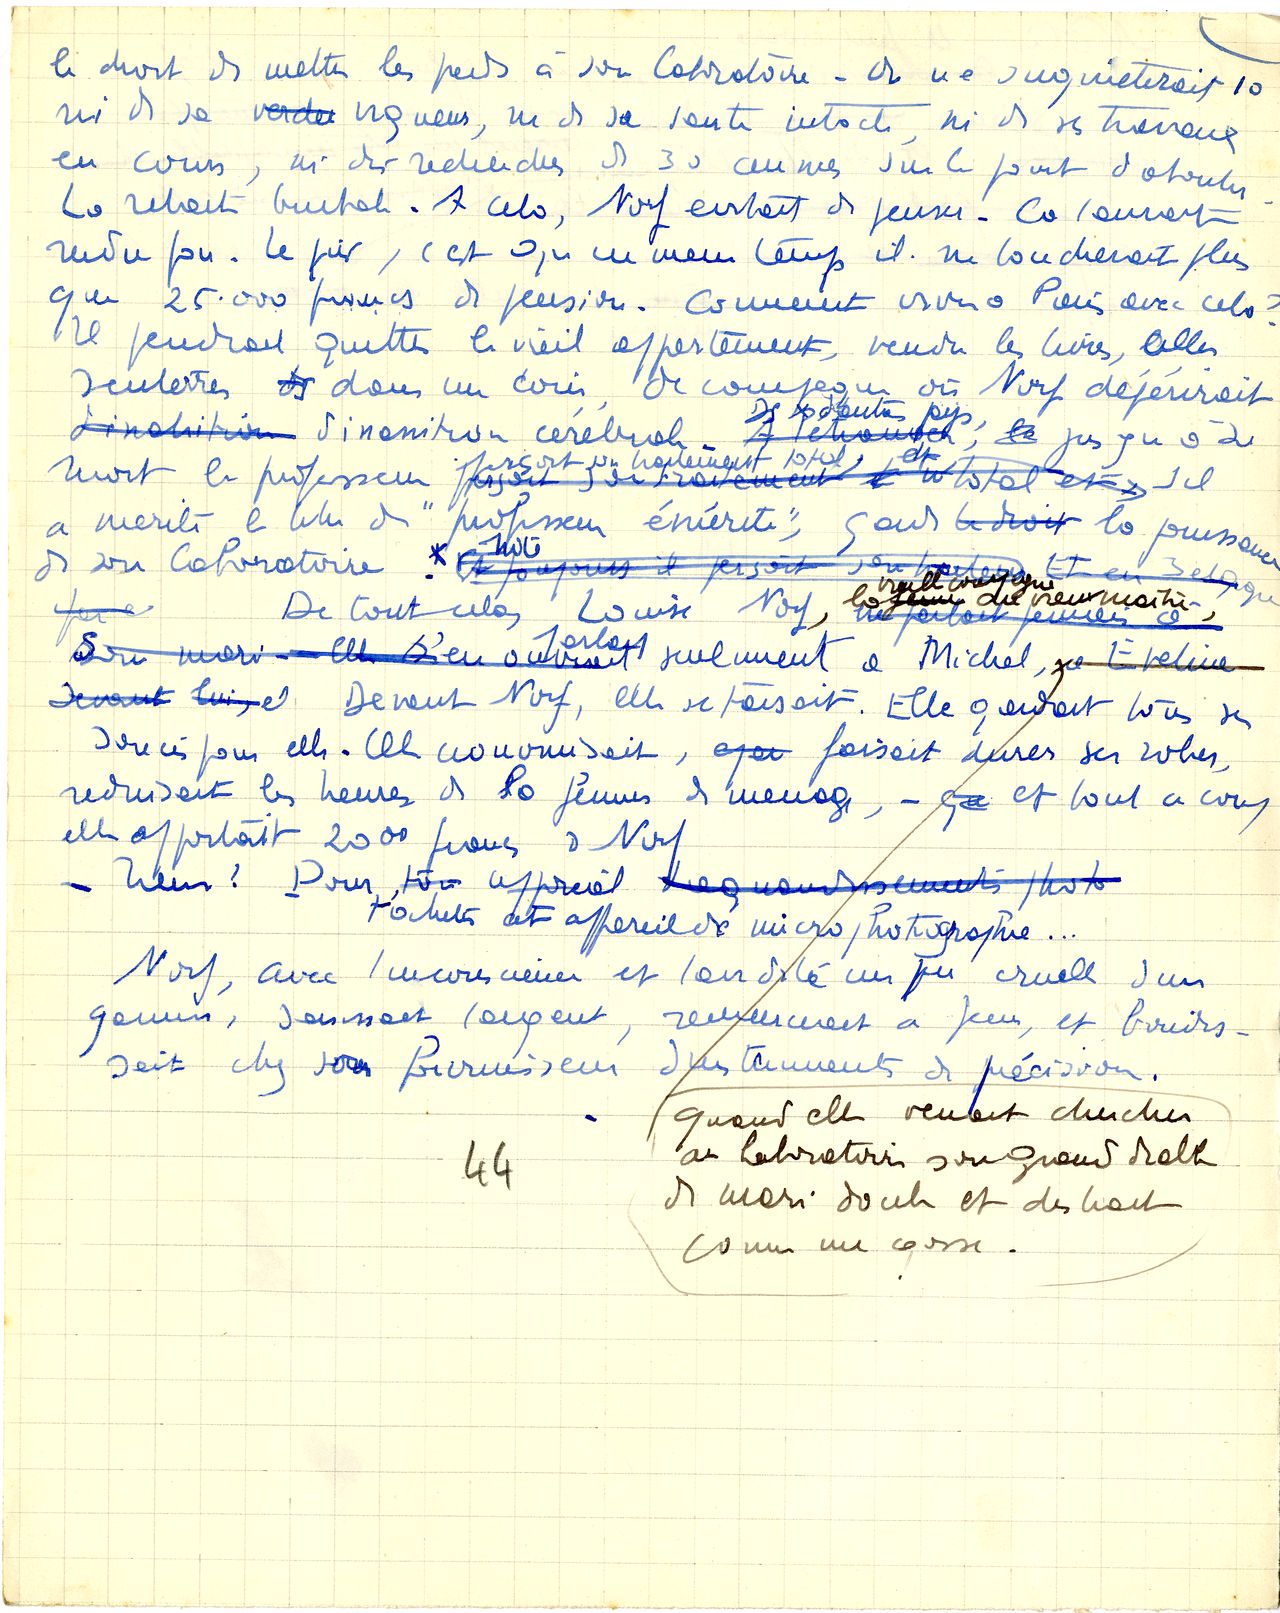 le droit de mettre les pieds à son laboratoire - On ne s'inquièterait 10
ni de sa verdeu vigueur, ni de sa santé intacte, ni de ses travaux
en cours, ni des recherches de 30 années sur le point d'aboutir.
La retraite brutale. A cela, Norf évitait de penser. Ca l'aurait
rendu fou. Le pis, c'est qu'en même temps il ne toucherait plus
que 25.000 francs de pension. Comment vivre à Paris avec cela ?
Il faudrait quitter le vieil appartement, vendre les livres, aller
s'enterrer dans un coin de campagne où Norf dépérirait
d'inanition d'inanition cérébrale. A l'étranger, jusqu'à sa
Dans d'autres pays,
mort le professeur perçoit son traitement total et s'il
perçoit son traitement total, et
a mérité le titre de "professeur émérite", garde le droit la jouissance
de son laboratoire. * Et toujours il perçoit son traitement Et en Belgique
note
De tout cela, Louise Norf, la femme du vieux maître, ne parlait jamais à
vieille compagne
son mari - Elle s'en ouvrait seulement à Michel, Eveline
parlait
devant lui, et Devant Norf, elle se taisait. Elle gardait tous ses
soucis pour elle. Elle économisait, faisait durer ses robes,
réduisait les heures de la femme de ménage, - et tout à coup
elle apportait 2000 francs à Norf
- Tiens ! Pour ton appareil d'agrandissements photo
t'acheter cet appareil de microphotographie...
Norf, avec l'inconscience et l'avidité un peu cruelle d'un
gamin, saisissait l'argent, remerciait à peine, et bondis-
sait chez son fournisseur d'instruments de précision.
quand elle venait chercher
au laboratoire son grand diable
de mari docile et distrait
comme un gosse.
44